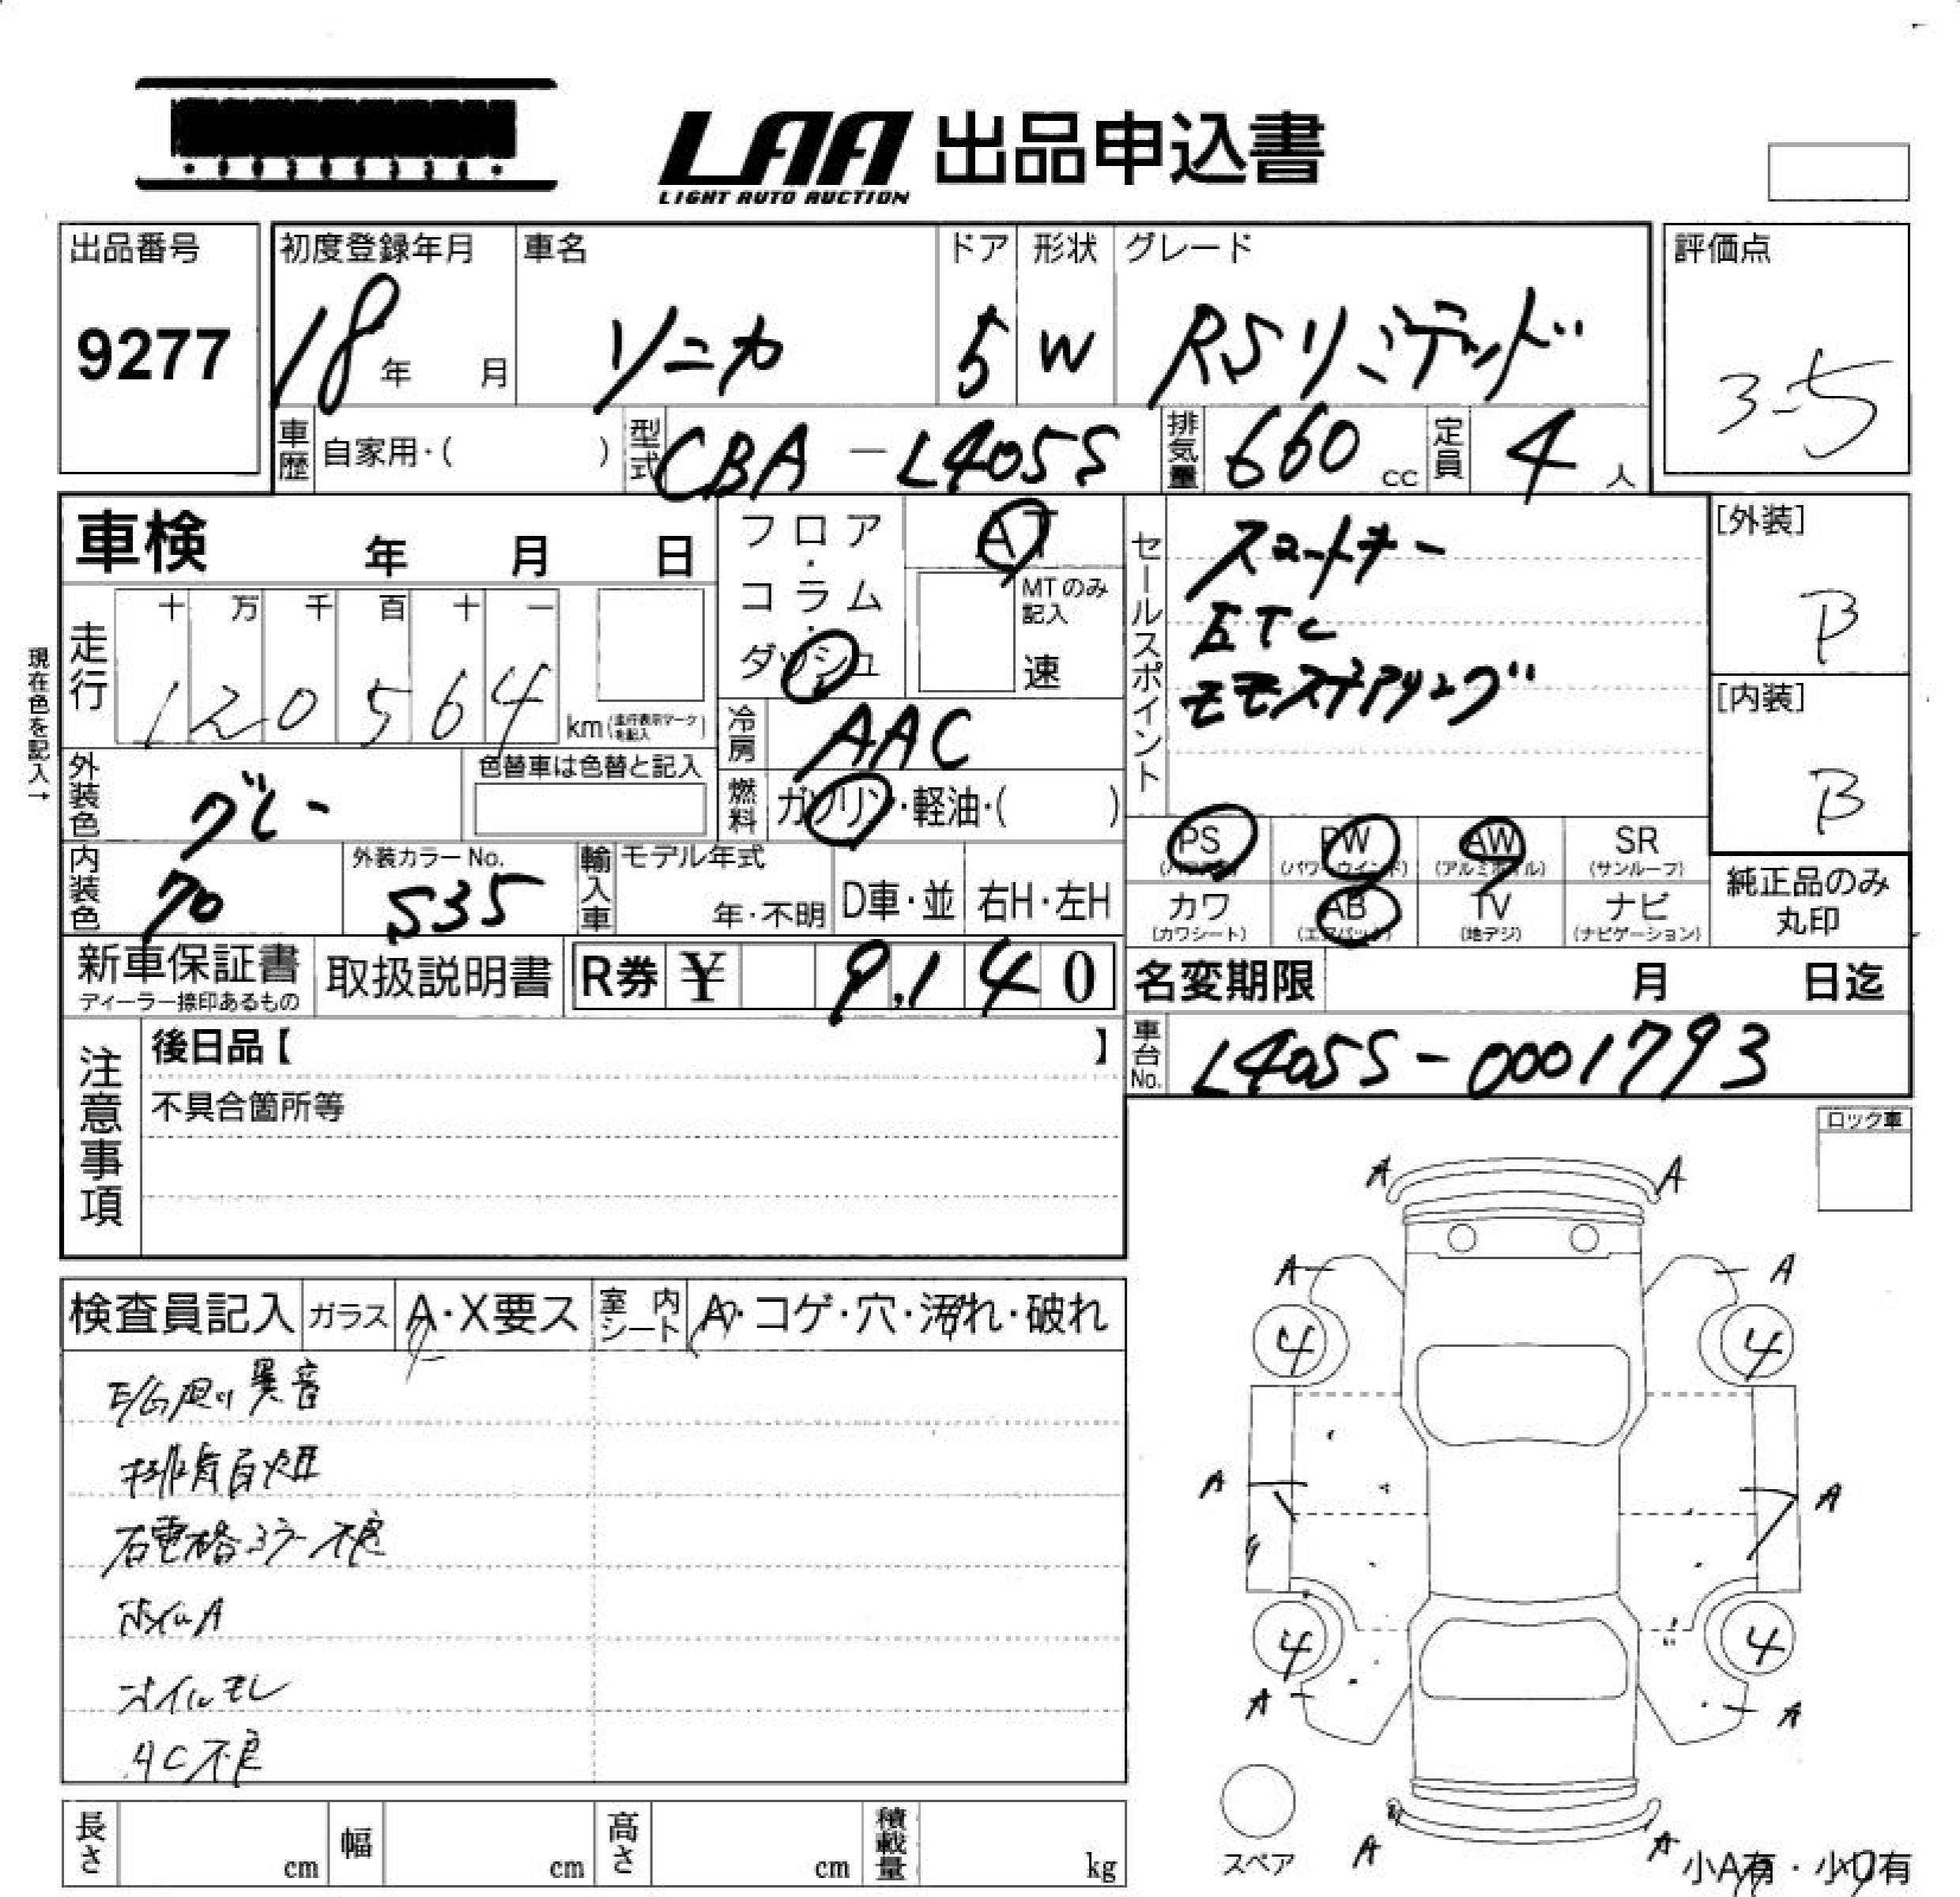 LAA 出品申込書
LIGHT AUTO AUCTION
出品番号
9277
初度登録年月
18年 月
車名
ソニカ
ドア
5
形状
W
グレード
RSリミテッド
評価点
3-5
車歴 自家用・( )
型式 CBA-L405S
排気量 660 cc
定員 4 人
車検 年 月 日
フロア・コラム・ダッシュ
AT
MTのみ記入
速
セールスポイント
スマートキー
ETC
モモステアリング
[外装]
B
[内装]
B
現在色を記入→
走行
十 万 千 百 十 一
1 2 0 5 6 4
km(走行表示マークを記入)
冷房 AAC
外装色 グレー
色替車は色替と記入
燃料 ガソリン・軽油・( )
内装色 70
外装カラーNo.
S35
輸入車
モデル年式
年・不明
D車・並
右H・左H
PS
(パワステ)
PW
(パワーウインド)
AW
(アルミホイル)
SR
(サンルーフ)
カワ
(カワシート)
AB
(エアバック)
TV
(地デジ)
ナビ
(ナビゲーション)
純正品のみ
丸印
新車保証書
ディーラー捺印あるもの
取扱説明書
R券 ¥ 9,140
名変期限 月 日迄
車台No. L405S-0001793
注意事項
後日品【 】
不具合箇所等
ロック車
検査員記入
ガラス A・X要ス
室内シート ・コゲ・穴・汚れ・破れ
E/G廻り異音
排気白煙
右電格ミラー不良
ホイルA
オイルモレ
AC不良
A A
A A
4 4
A A
4 4
A A
A A
スペア
小A有・小U有
長さ cm
幅 cm
高さ cm
積載量 kg